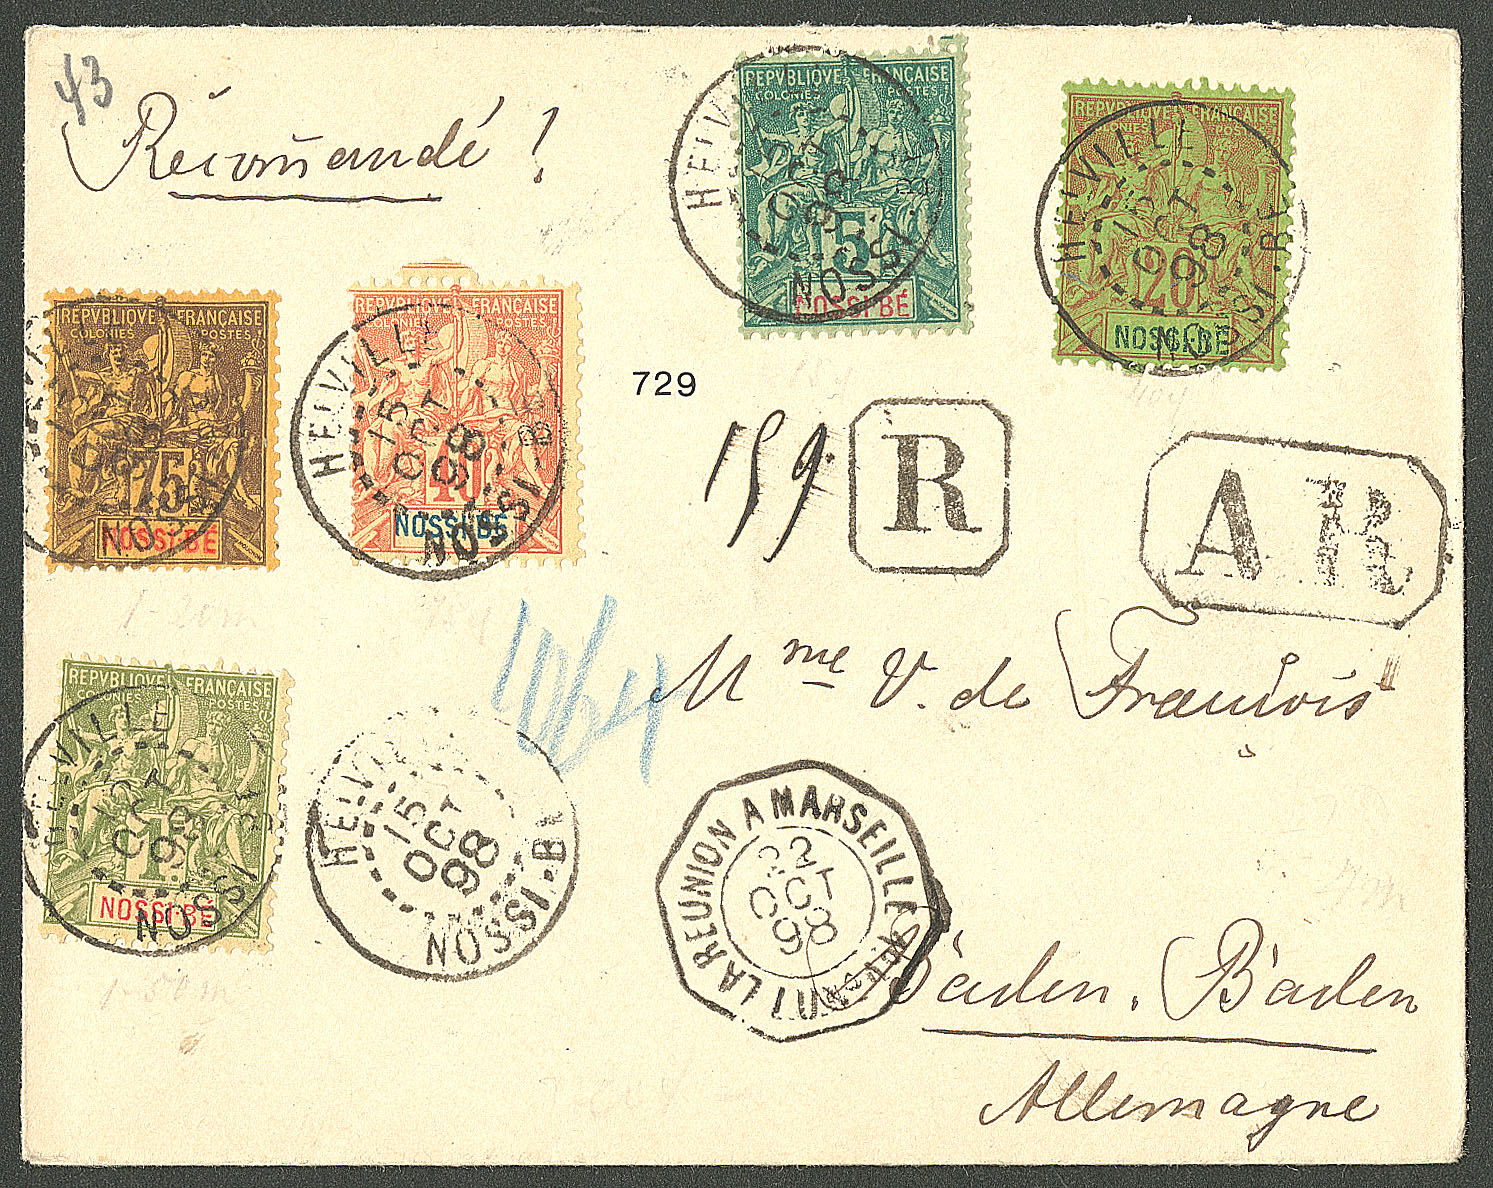 43
Recommandé !
REPVBLIQVE FRANÇAISE
COLONIES POSTES
5
NOSSI-BÉ
HELVILLE
15
OCT
98
NOSSI-BÉ
REPVBLIQVE FRANÇAISE
COLONIES POSTES
20
NOSSI-BÉ
HELVILLE
15
OCT
98
NOSSI-BÉ
REPVBLIQVE FRANÇAISE
COLONIES POSTES
75
NOSSI-BÉ
NOSSI
REPVBLIQVE FRANÇAISE
COLONIES POSTES
40
NOSSI-BÉ
HELVILLE
15
OCT
98
NOSSI-BÉ
729
159.
R
AR
Mme V. de François
REPVBLIQVE FRANÇAISE
COLONIES POSTES
1F
NOSSI-BÉ
HELVILLE
15
OCT
98
NOSSI-BÉ
HELVILLE
15
OCT
98
NOSSI-BÉ
LA REUNION A MARSEILLE
22
OCT
98
Baden, Baden
Allemagne
1-50 m